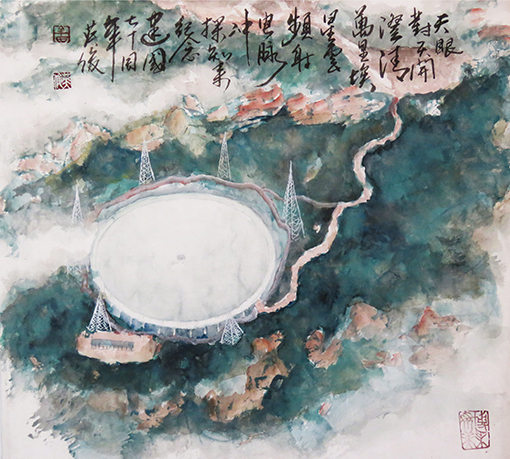 天眼
對天開
澄清
萬里埃
星雲
頻射
電脉
冲
探知來
紀念
建國
七十周
年